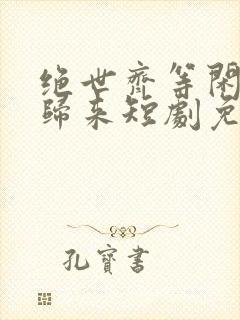 绝世齐等闲
归来短剧免
孔宝书